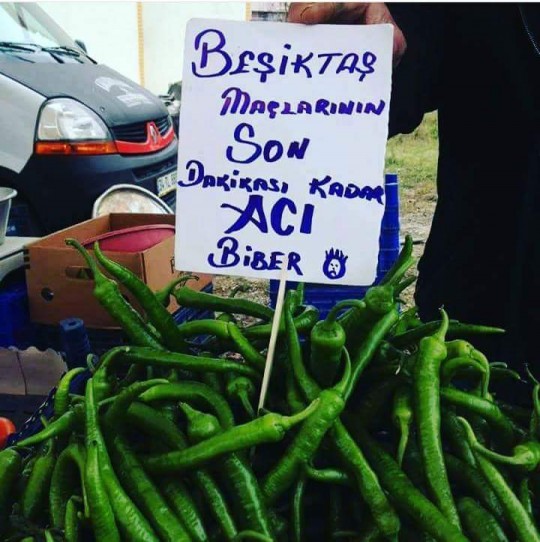 BEŞİKTAŞ
MAÇLARININ
SON
DAKİKASI KADAR
ACI
BİBER